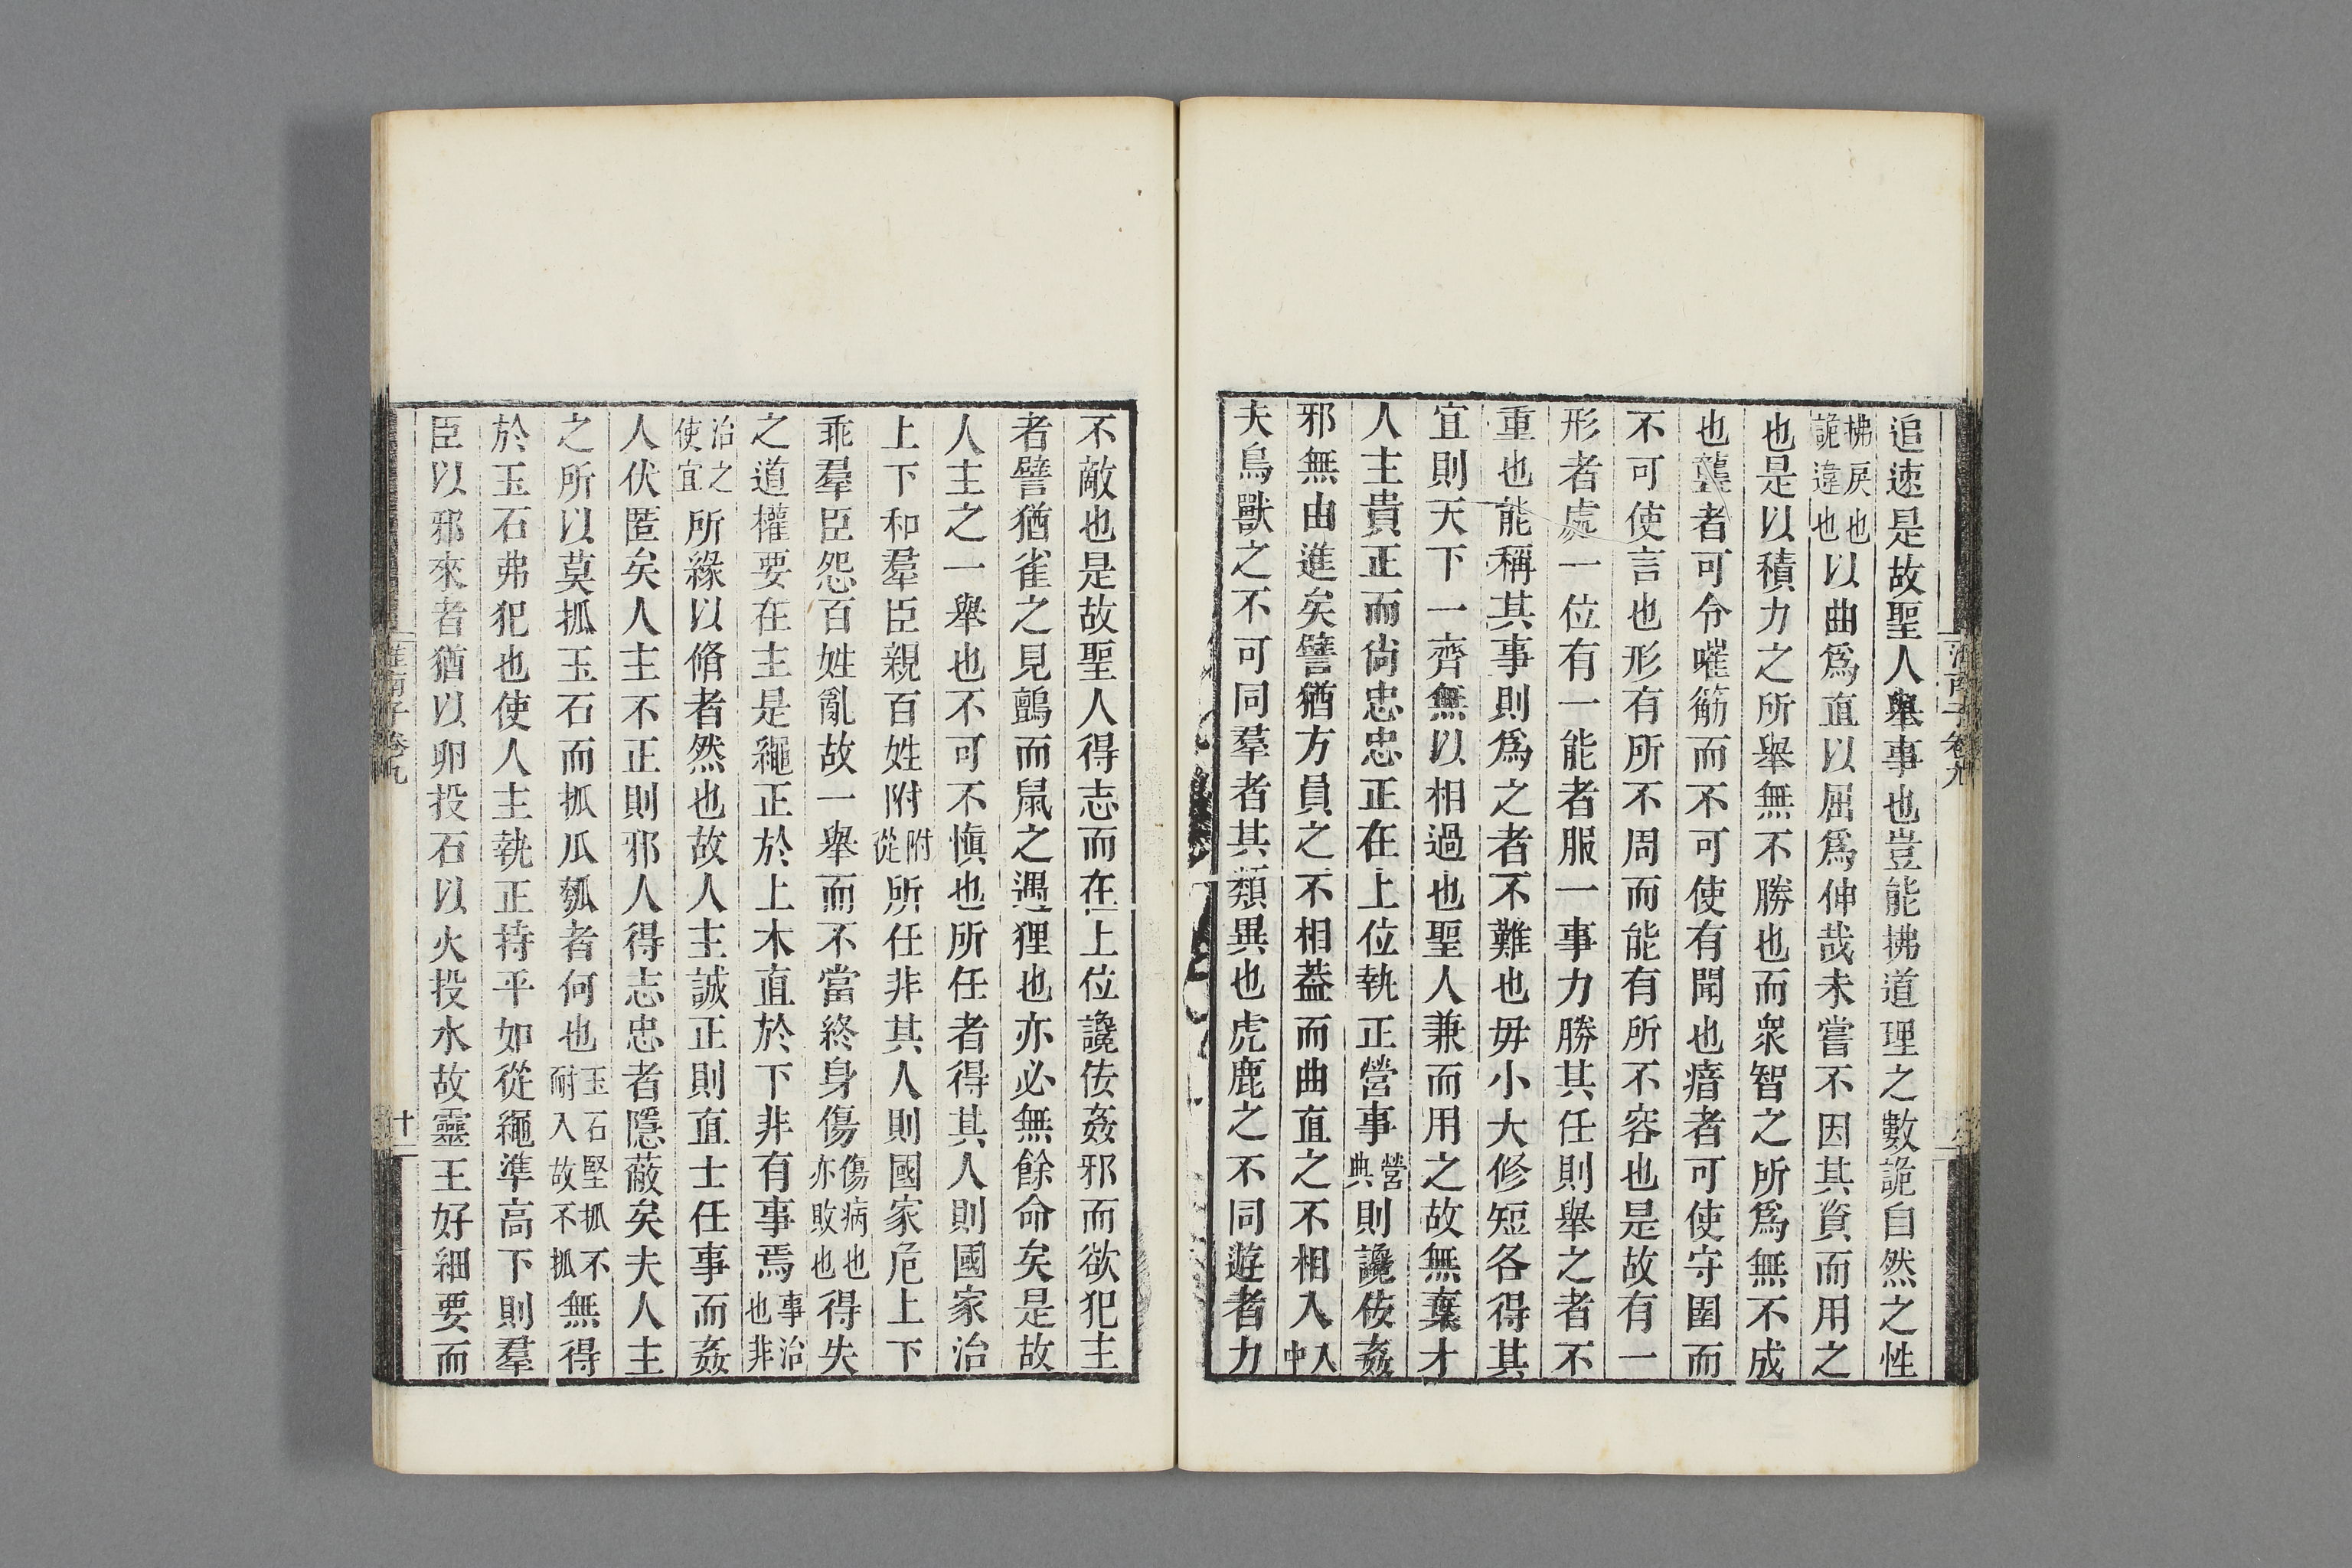 追速是故聖人舉事也豈能拂道理之數詭自然之性
拂戾也詭違也以曲爲直以屈爲伸哉未嘗不因其資而用之
也是以積力之所舉無不勝也而衆智之所爲無不成
也聾者可令嗺筋而不可使有聞也瘖者可使守圉而
不可使言也形有所不周而能有所不容也是故有一
形者處一位有一能者服一事力勝其任則舉之者不
重也能稱其事則爲之者不難也毋小大修短各得其
宜則天下一齊無以相過也聖人兼而用之故無棄才
人主貴正而尚忠忠正在上位執正營事營典則讒佞姦
邪無由進矣譬猶方員之不相蓋而曲直之不相入入中
夫鳥獸之不可同羣者其類異也虎鹿之不同遊者力
不敵也是故聖人得志而在上位讒佞姦邪而欲犯主
者譬猶雀之見鸇而鼠之遇狸也亦必無餘命矣是故
人主之一舉也不可不愼也所任者得其人則國家治
上下和羣臣親百姓附附從所任非其人則國家危上下
乖羣臣怨百姓亂故一舉而不當終身傷傷病也亦敗也得失
之道權要在主是繩正於上木直於下非有事焉事治也非
治之使宜所緣以脩者然也故人主誠正則直士任事而姦
人伏匿矣人主不正則邪人得志忠者隱蔽矣夫人主
之所以莫抓玉石而抓瓜瓠者何也玉石堅抓不耐入故不抓無得
於玉石弗犯也使人主執正持平如從繩準高下則羣
臣以邪來者猶以卵投石以火投水故靈王好細要而
淮南子卷九
十